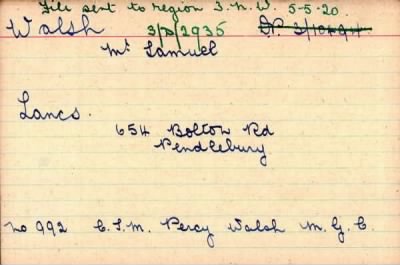 File sent to region 3. N.W. 5-5-20.
Walsh 3/W/2935
Mr Samuel
Lancs.
654 Bolton Rd
Pendlebury
No 992 C.S.M. Percy Walsh M.G.C.